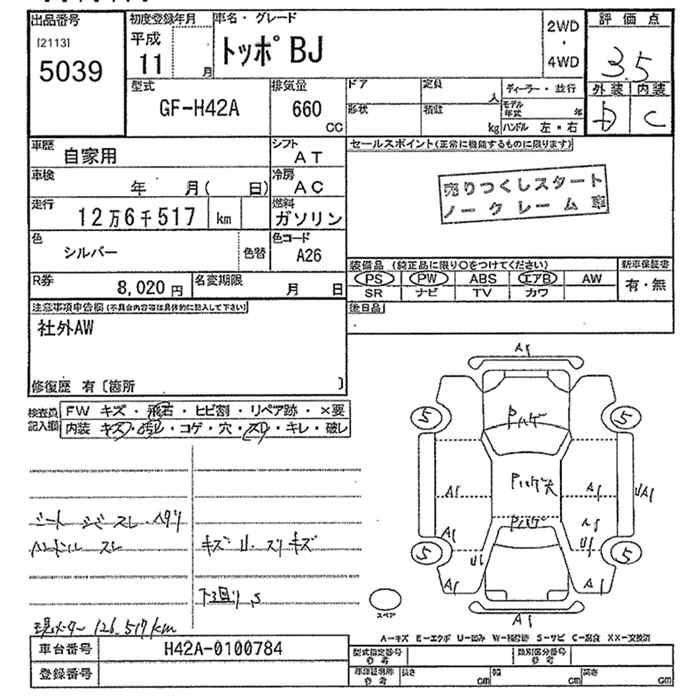 出品番号
[2113]
5039
初度登録年月
平成
11 月
車名・グレード
トッポBJ
2WD
・
4WD
評価点
3.5
外装 内装
D C
型式
GF-H42A
排気量
660
CC
ドア 定員 人
形状 積載 kg
ディーラー・並行
モデル年式 年
ハンドル 左・右
車歴
自家用
シフト
AT
車検
年 月( 日)
冷房
AC
走行
12万6千517 km
燃料
ガソリン
色
シルバー
色替
色コード
A26
R券
8,020円
名変期限
月 日
セールスポイント(正常に機能するものに限ります)
売りつくしスタート
ノークレーム
装備品 (純正品に限り○をつけてください)
PS PW ABS エアB AW
SR ナビ TV カワ
新車保証書
有・無
後日品
注意事項申告欄(不具合内容等は具体的に記入して下さい)
社外AW
修復歴 有〔箇所 〕
検査員記入欄
FW キズ・飛石・ヒビ割・リペア跡・×要
内装 キズ・汚れ・コゲ・穴・スレ・キレ・破レ
シート シバ スレ ヘタリ
ハンドル スレ
キズ U スリキズ
下回り S
現メーター 126,517km
A1
Pハゲ
5 5
Pハゲ大
A1 A1 UA1
Pハゲ
A1 A1
U1 U1
5 5
A1 A1
A1
スペア
A-キズ E-エクボ U-凹み W-補修跡 S-サビ C-腐食 XX-交換済
車台番号
H42A-0100784
登録番号
型式指定番号
参考
類別区分番号
参考
車検証期限
参考
長さ cm
幅 cm
高さ cm